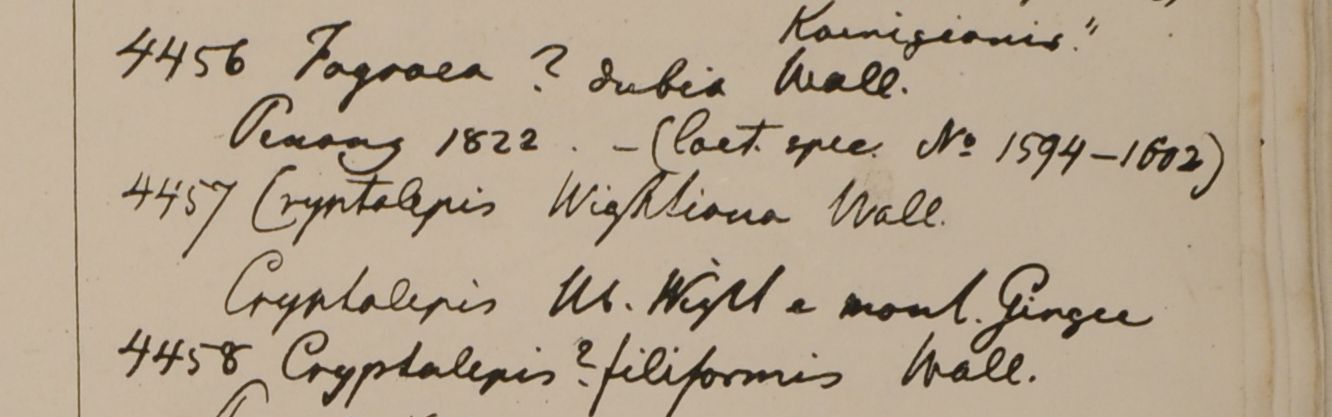 Koenigianis."
4456 Fagraea ? dubia Wall.
Penang 1822 . – (Caet. spec. No 1594–1602)
4457 Cryptolepis Wightiana Wall.
Cryptolepis Wight e mont. Gingee
4458 Cryptolepis ? filiformis Wall.